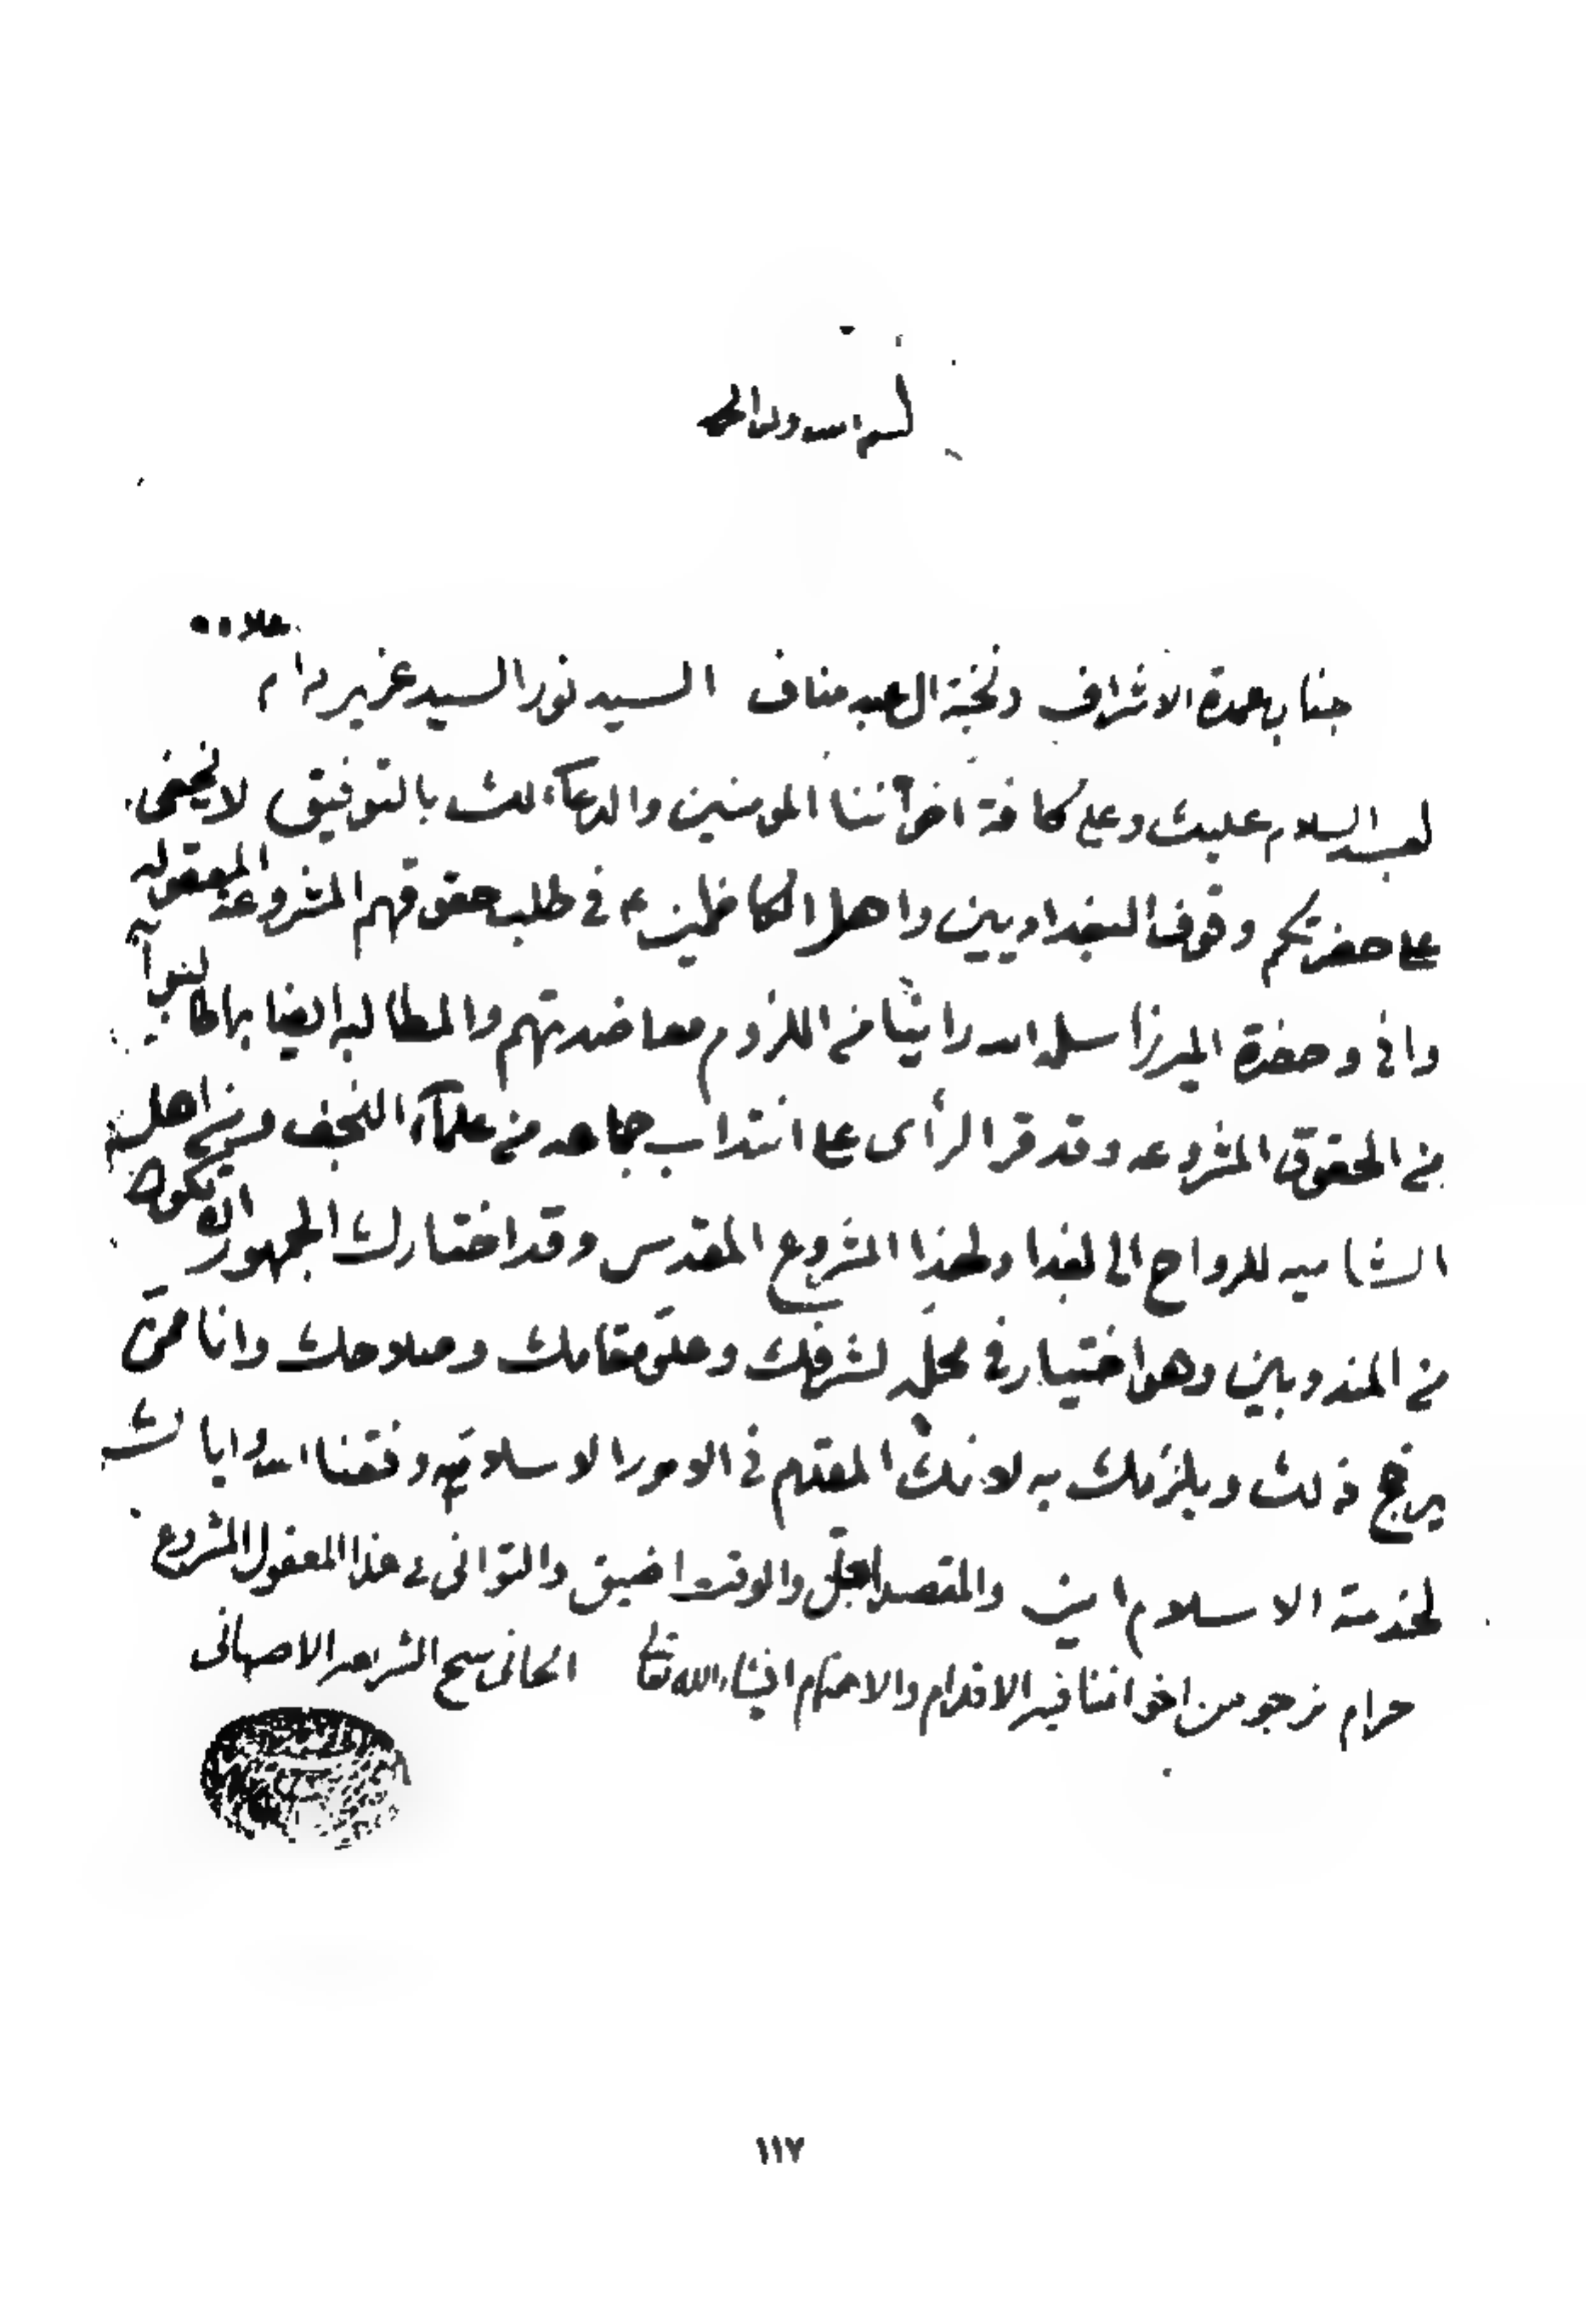 بسم الله وله الحمد
علاه
جناب عمدة الاشراف ونخبة ال عبد مناف السيد نور السيد عزيز دام
بعد السلام عليك وعلى كافة اخواننا المؤمنين والدعاء لك بالتوفيق لا يخفى
على حضرتكم وقوف البغداديين واهل الكاظمين في طلب حقوقهم المشروعة المعقوله
واني وحضرة الميرزا سلمه الله راينا من اللازم معاضدتهم والمطالبه ايضا بها
من الحقوق المشروعه وقد قر الرأى على انتداب جماعه من علماء النجف ومن اهل
الشاميه للرواح الى بغداد لهذا المشروع المقدس وقد اختارك الجمهور ان تكون
من المندوبين وهو اختيار في محله لشرفك وعلو مقامك وصلاحك وانا ممن
يرجح ذلك ويلزمك به لانك المقدم في الامور الاسلاميه وفقنا الله واياك
لخدمة الاسلام امين والمقصد اجل والوقت اضيق والتواني في هذا المعقول المشروع
حرام نرجو من اخواننا فيه الاقدام والاهتمام انشاء الله تعالى الجاني شيخ الشريعه الاصبهاني
١١٧